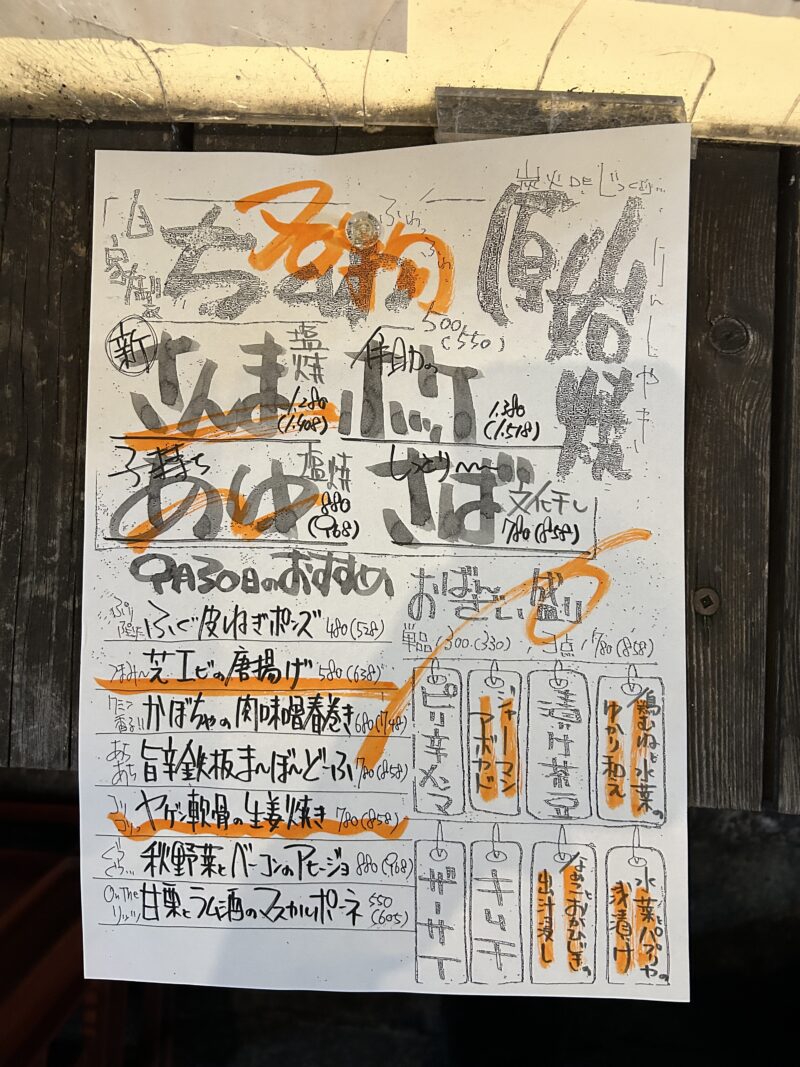 炭火DEじっくり
原始焼
げんしやき
自家製
ちくわ
ふわっふわ
500(550)
新
さんま
塩焼
1.280(1.408)
ホッケ
1.380(1.518)
子持ち
あゆ
塩焼
880(968)
しっとり〜
さば
文化干し
780(858)
9月30日のおすすめ
ふぐ皮ねぎポンズ 480(528)
芝エビの唐揚げ 580(638)
かぼちゃの肉味噌春巻き 680(748)
あちあち
旨辛鉄板まーぼーどーふ 780(858)
コリコリっ
ヤゲン軟骨の生姜焼き 780(858)
ぐつぐつ…
秋野菜とベーコンのアヒージョ 880(968)
On The リッツ
甘栗とラム酒のマスカルポーネ 550(605)
おばんざい盛り
単品/300.(330)、3点/780(858)
鶏むねと水菜のゆかり和え
漬け茶豆
ジャーマンアボカド
ピリ辛メンマ
水菜とパプリカの浅漬け
なめことおかひじきの出汁浸し
キムチ
ザーサイ